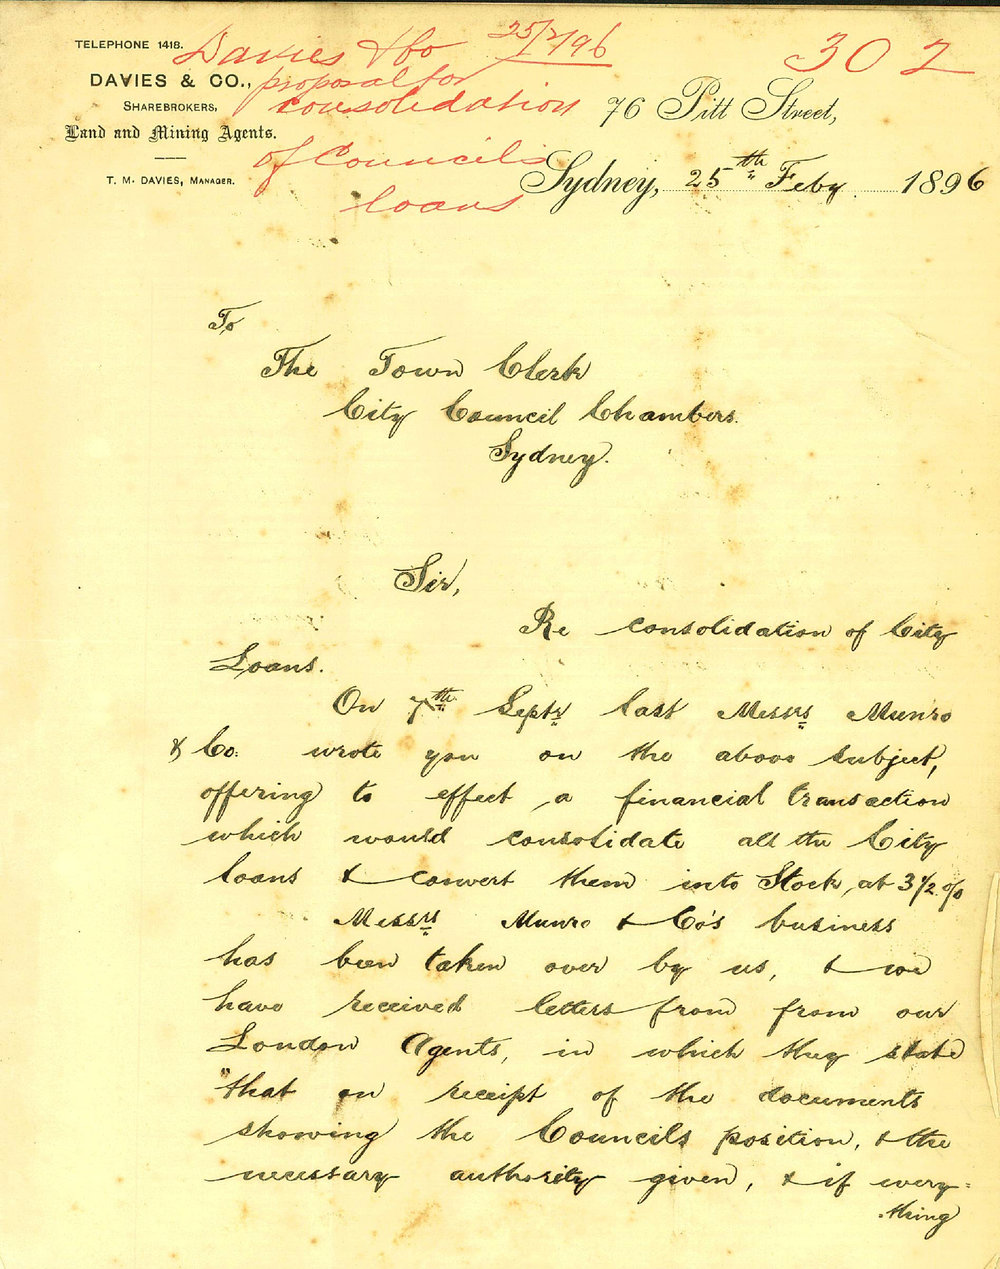 TELEPHONE 1418.
DAVIES & CO.,
SHAREBROKERS,
Land and Mining Agents.
T. M. DAVIES, MANAGER.
Davies & Co 25/2/96
proposal for
consolidation
of Council's
loans
302
76 Pitt Street,
Sydney, 25th Feby 1896
To
The Town Clerk
City Council Chambers.
Sydney.
Sir,
Re consolidation of City
Loans.
On 7th Septr last Messrs Munro
& Co: wrote you on the above subject,
offering to effect a financial transaction
which would consolidate all the City
loans & convert them into Stock, at 3 1/2 %
Messrs Munro & Co's business
has been taken over by us, & we
have received letters from from our
London Agents, in which they state
"that on receipt of the documents
showing the Councils position, & the
necessary authority given, & if every=
thing